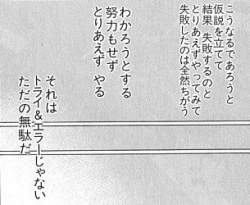 こうなるであろうと
仮説を立てて
結果 失敗するのと
とりあえずやってみて
失敗したのは全然ちがう
わかろうとする
努力もせず
とりあえず やる
それは
トライ&エラーじゃない
ただの無駄だ